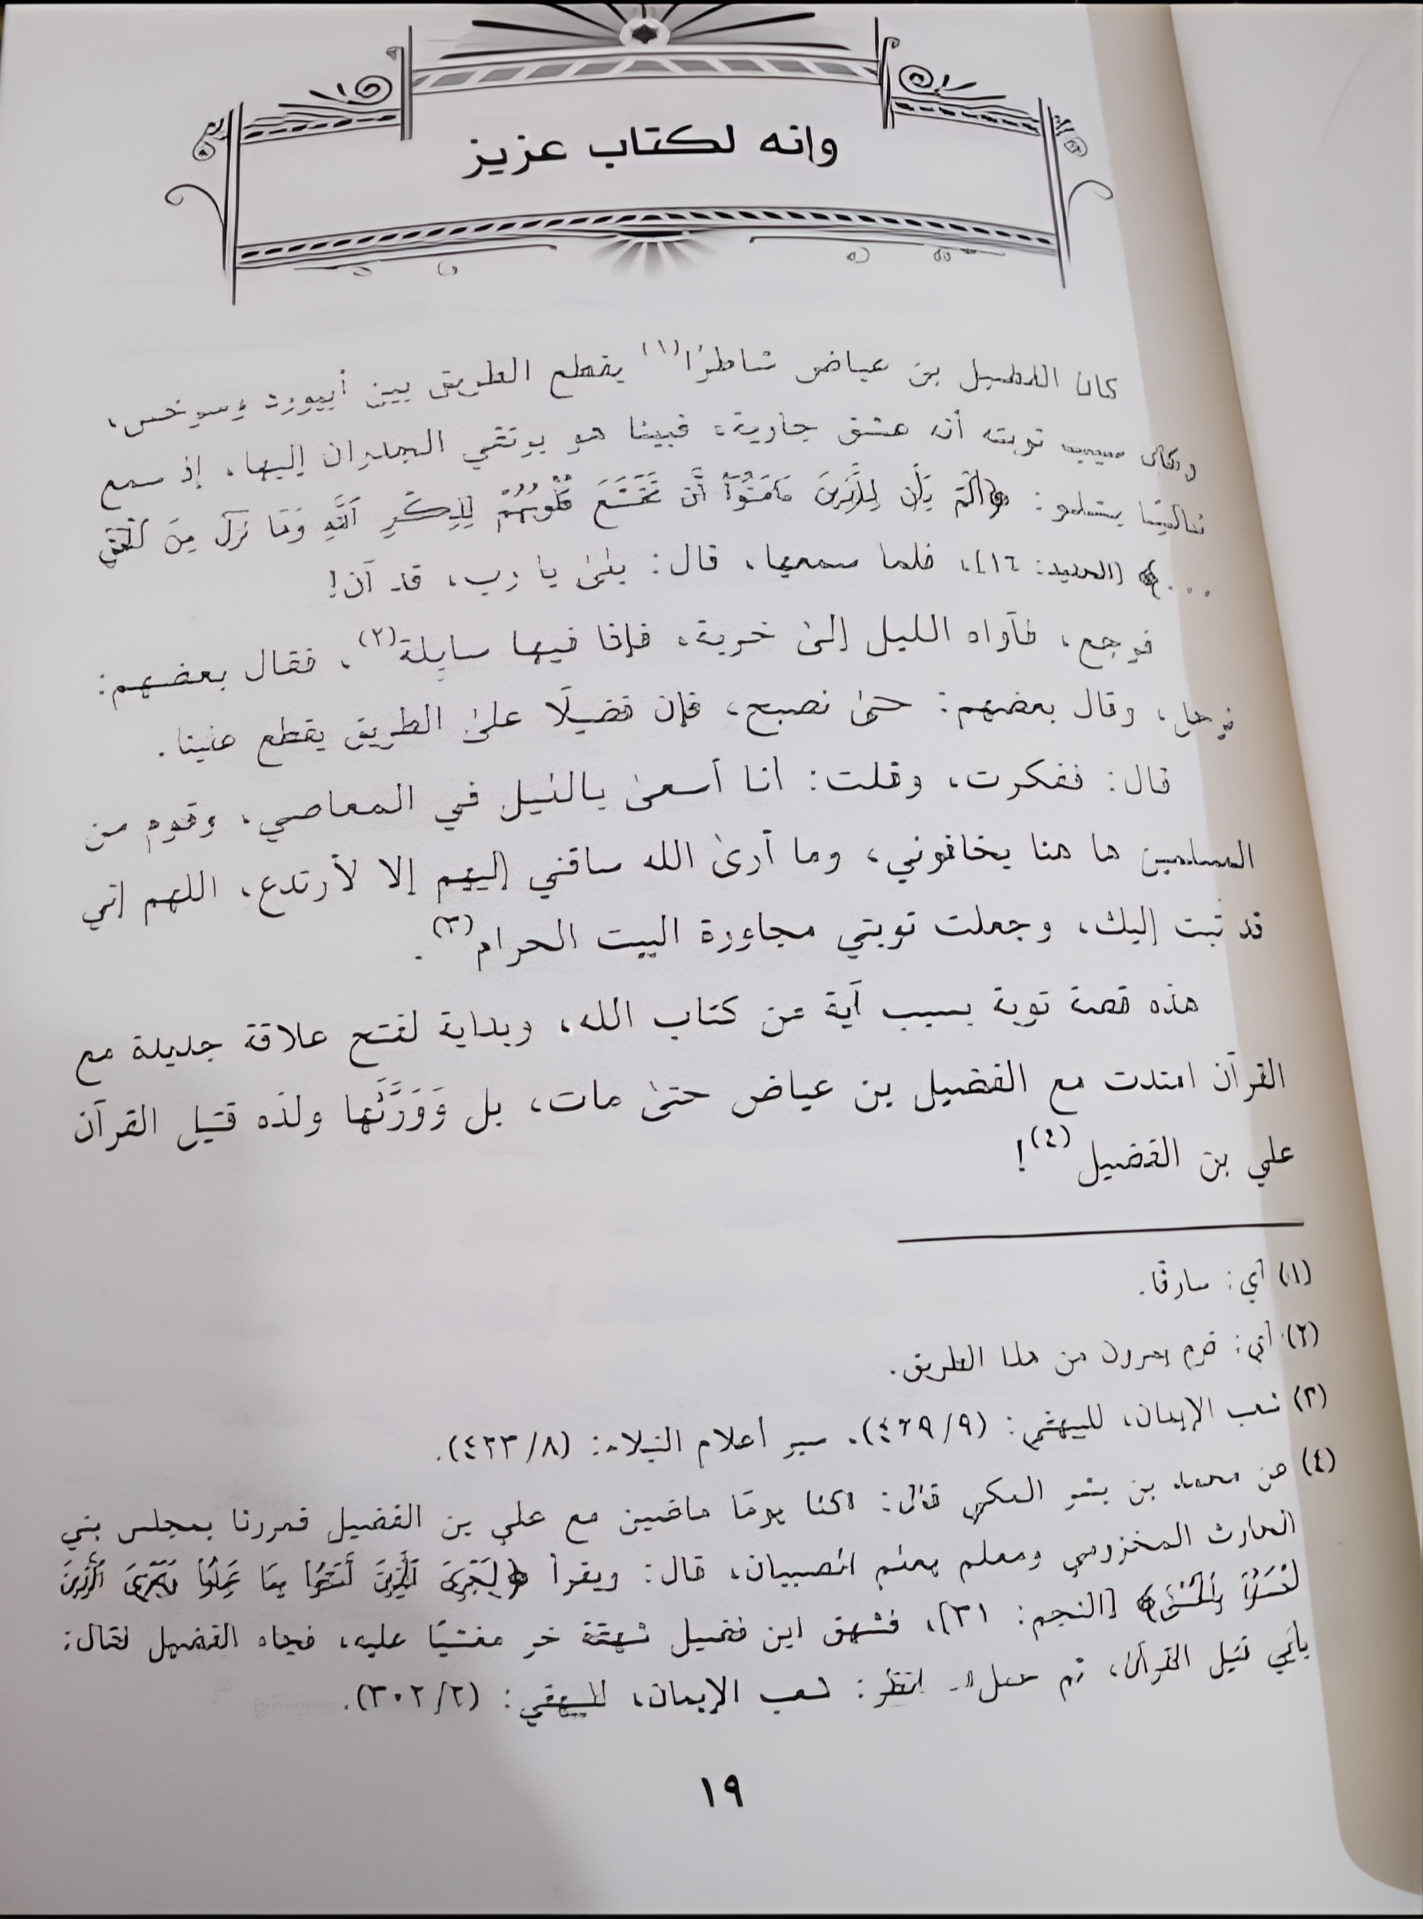 وإنه لكتاب عزيز
كان الفضيل بن عياض شاطرًا(١) يقطع الطريق بين أبيورد وسرخس،
وكان سبب توبته أنه عشق جارية، فبينا هو يرتقي الجدران إليها، إذ سمع
تاليًا يتلو: ﴿أَلَمْ يَأْنِ لِلَّذِينَ ءَامَنُوٓا۟ أَن تَخْشَعَ قُلُوبُهُمْ لِذِكْرِ ٱللَّهِ وَمَا نَزَلَ مِنَ ٱلْحَقِّ
...﴾ [الحديد: ١٦]، فلما سمعها، قال: بلىٰ يا رب، قد آن!
فرجع، فآواه الليل إلىٰ خربة، فإذا فيها سابلة(٢)، فقال بعضهم:
نرحل، وقال بعضهم: حتىٰ نصبح، فإن فضيلًا علىٰ الطريق يقطع علينا.
قال: ففكرت، وقلت: أنا أسعىٰ بالليل في المعاصي، وقوم من
المسلمين ها هنا يخافوني، وما أرىٰ الله ساقني إليهم إلا لأرتدع، اللهم إني
قد تبت إليك، وجعلت توبتي مجاورة البيت الحرام(٣).
هذه قصة توبة بسبب آية من كتاب الله، وبداية لفتح علاقة جديدة مع
القرآن امتدت مع الفضيل بن عياض حتىٰ مات، بل وَوَرَّثَها ولدَه قتيل القرآن
علي بن الفضيل(٤)!
(١) أي: سارقًا.
(٢) أي: قوم يمرون من هذا الطريق.
(٣) شعب الإيمان، للبيهقي: (٤٢٩/٩)، سير أعلام النبلاء: (٤٢٣/٨).
(٤) عن محمد بن بشر المكي قال: «كنا يومًا ماضين مع علي بن الفضيل فمررنا بمجلس بني
الحارث المخزومي ومعلم يعلم الصبيان، قال: ويقرأ ﴿لِيَجْزِىَ ٱلَّذِينَ أَسَٰٓـُٔوا۟ بِمَا عَمِلُوا۟ وَيَجْزِىَ ٱلَّذِينَ
أَحْسَنُوا۟ بِٱلْحُسْنَى﴾ [النجم: ٣١]، فشهق ابن فضيل شهقة خر مغشيًا عليه، فجاء الفضيل فقال:
بأبي قتيل القرآن، ثم حمل». انظر: شعب الإيمان، للبيهقي: (٣٠٢/٢).
١٩